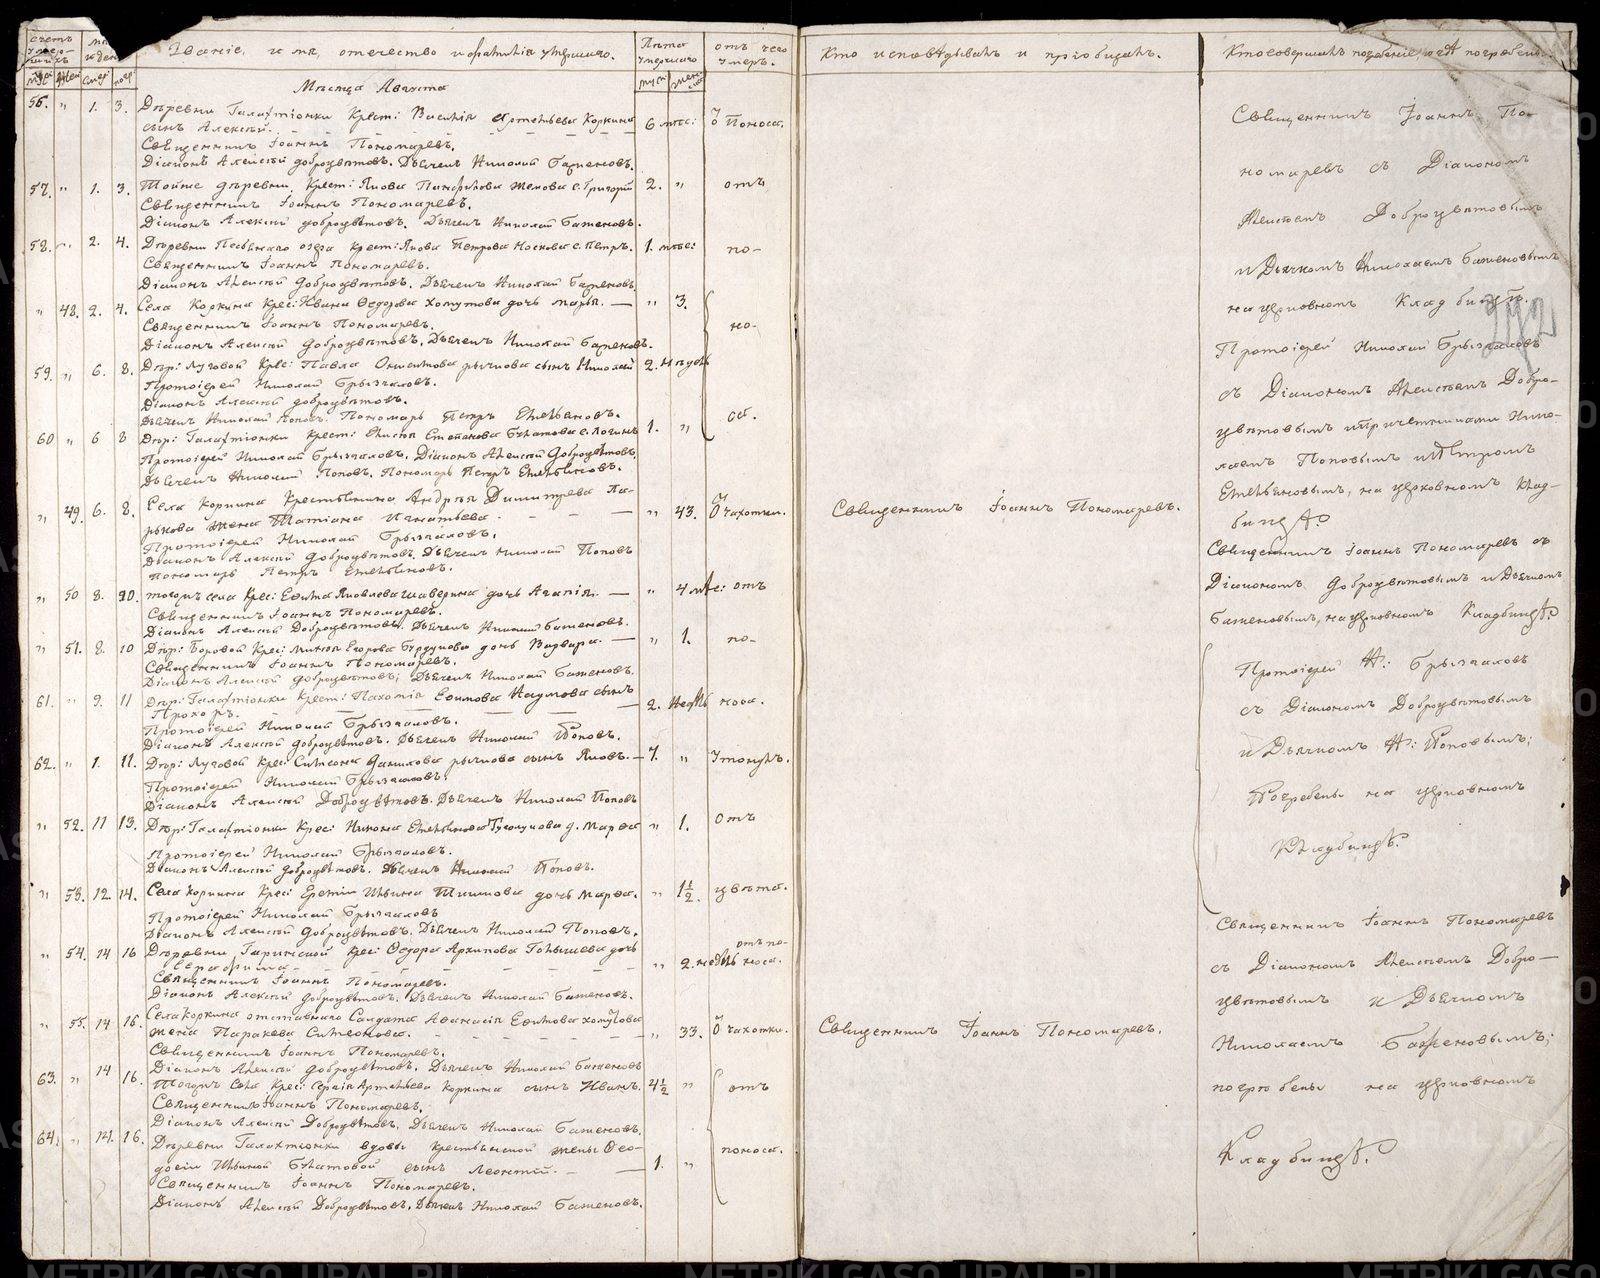 Званіе, имя, отечество и фамилія умершаго.
Лѣта умершаго
отъ чего умеръ.
Кто исповѣдывалъ и пріобщалъ.
Мѣсяца Августа
56. " 1. 3. Деревни Галактіонки Крест: Василія Артемьева Коркина 6 мѣс: Ѿ Поноса.
сынъ Алексѣй.
Священникъ Іоаннъ Пономаревъ.
Діаконъ Алексѣй Доброцвѣтовъ. Дьячекъ Николай Баженовъ.
57. " 1. 3. Тойже деревни Крест: Якова Григорій 2. " отъ
Священникъ Іоаннъ Пономаревъ.
Діаконъ Алексѣй Доброцвѣтовъ. Дьячекъ Николай Баженовъ.
58. " 2. 4. Деревни озера Крест: Якова Петрова Носкова с. Петръ. 1. мѣс: по-
Священникъ Іоаннъ Пономаревъ.
Діаконъ Алексѣй Доброцвѣтовъ. Дьячекъ Николай Баженовъ.
" 48. 2. 4. Села Коркина Крес: Ивана Ѳедорова Хомутова дочь Марья. " 3. но-
Священникъ Іоаннъ Пономаревъ.
Діаконъ Алексѣй Доброцвѣтовъ. Дьячекъ Николай Баженовъ.
59. " 6. 8. Дер: Луговой Крес: Павла Рычкова сынъ Николай 2.
Протоіерей Николай Брызгаловъ.
Діаконъ Алексѣй Доброцвѣтовъ.
Дьячекъ Николай Поповъ. Пономарь Петръ Емельяновъ.
60 " 6 8 Дер: Галактіонки Крест: Степанова Булатова с. Логинъ 1. " са.
Протоіерей Николай Брызгаловъ. Діаконъ Алексѣй Доброцвѣтовъ.
Дьячекъ Николай Поповъ. Пономарь Петръ Емельяновъ.
" 49. 6. 8. Села Коркина Крестьянина Андрея Димитрева Ла-
рькова жена Татіана Игнатьева. " 43. Ѿ чахотки. Священникъ Іоаннъ Пономаревъ.
Протоіерей Николай Брызгаловъ.
Діаконъ Алексѣй Доброцвѣтовъ. Дьячекъ Николай Поповъ
пономарь Петръ Емельяновъ.
" 50 8. 10. тогожъ села Крес: Еѳима Яковлева Шаверина дочь Агапія. " 4 мѣс: отъ
Священникъ Іоаннъ Пономаревъ.
Діаконъ Алексѣй Доброцвѣтовъ. Дьячекъ Николай Баженовъ.
" 51. 8. 10 Дер: Боровой Крес: Егорова дочь Варвара. " 1. по-
Священникъ Іоаннъ Пономаревъ.
Діаконъ Алексѣй Доброцвѣтовъ; Дьячекъ Николай Баженовъ.
61. " 9. 11 Дер: Галактіонки Крест: Пахомія Еѳимова Наумова сынъ
Прохоръ. 2. недѣль носа.
Протоіерей Николай Брызгаловъ.
Діаконъ Алексѣй Доброцвѣтовъ. Дьячекъ Николай Поповъ.
62. " 1. 11. Дер: Луговой Крес: Симеона Данилова Рычкова сынъ Яковъ. 7. " Утонулъ.
Протоіерей Николай Брызгаловъ.
Діаконъ Алексѣй Доброцвѣтовъ. Дьячекъ Николай Поповъ
" 52. 11 13. Дер: Галактіонки Крес: Никона Емельянова д. Марѳа " 1. Отъ
Протоіерей Николай Брызгаловъ.
Діаконъ Алексѣй Доброцвѣтовъ. Дьячекъ Николай Поповъ.
" 53. 12. 14. Села Коркина Крес: Ильина дочь Марѳа. " 1½. цвѣта.
Протоіерей Николай Брызгаловъ
Діаконъ Алексѣй Доброцвѣтовъ. Дьячекъ Николай Поповъ.
" 54. 14 16 Деревни Крес: Ѳедора Архипова Голышева дочь отъ по-
Серафима. " 2. недѣль носа.
Священникъ Іоаннъ Пономаревъ.
Діаконъ Алексѣй Доброцвѣтовъ. Дьячекъ Николай Баженовъ.
" 55. 14 16. Села Коркина отставнаго Солдата Аѳанасія Еѳимова Хомутова
жена Параскева Симеонова. " 33. Ѿ чахотки. Священникъ Іоаннъ Пономаревъ.
Священникъ Іоаннъ Пономаревъ.
Діаконъ Алексѣй Доброцвѣтовъ. Дьячекъ Николай Баженовъ
63. " 14 16. Тогожъ Села Крес: Сергія Артемьева Коркина сынъ Иванъ. 4½ " отъ
Священникъ Іоаннъ Пономаревъ.
Діаконъ Алексѣй Доброцвѣтовъ. Дьячекъ Николай Баженовъ.
64. " 14. 16. Деревни Галактіонки вдовы крестьянской жены Ѳео-
досіи Ильиной Булатовой сынъ Леонтій. 1. " поноса.
Священникъ Іоаннъ Пономаревъ.
Діаконъ Алексѣй Доброцвѣтовъ. Дьячекъ Николай Баженовъ.
Священникъ Іоаннъ По-
номаревъ съ Діакономъ
Алексѣемъ Доброцвѣтовымъ
и Дьячкомъ Николаемъ Баженовымъ
на церковномъ Кладбищѣ.
Протоіерей Николай Брызгаловъ
съ Діакономъ Алексѣемъ Добро-
цвѣтовымъ и причетниками Нико-
лаемъ Поповымъ и Петромъ
Емельяновымъ, на церковномъ Клад-
бищѣ.
Священникъ Іоаннъ Пономаревъ съ
Діакономъ Доброцвѣтовымъ и Дьячкомъ
Баженовымъ, на церковномъ Кладбищѣ.
Протоіерей Н: Брызгаловъ
съ Діакономъ Доброцвѣтовымъ
и Дьячкомъ Н: Поповымъ;
Погребены на церковномъ
Кладбищѣ.
Священникъ Іоаннъ Пономаревъ
съ Діакономъ Алексѣемъ Добро-
цвѣтовымъ и Дьячкомъ
Николаемъ Баженовымъ;
погребены на церковномъ
Кладбищѣ.
METRIKI.GASO-URAL.RU